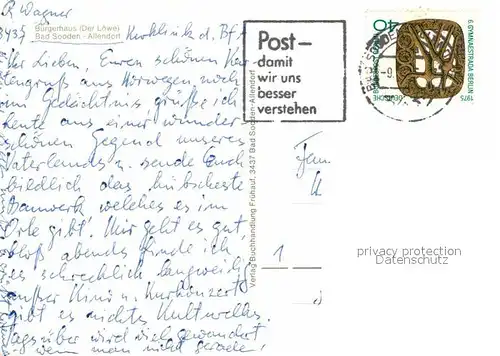 R. Wagner
3437
Bürgerhaus (Der Löwe)
Bad Sooden - Allendorf
Kurklinik d. BfA
Ihr Lieben, Euren schönen Kar-
tengruß aus Norwegen noch
im Gedächtnis grüße ich
heute aus einer wunder
schönen Gegend unseres
Vaterlands u. sende Euch
bildlich das hübscheste
Bauwerk welches es im
Orte gibt. Mir geht es gut,
bloß abends finde ich
es schrecklich langweilig
außer Kino u. Kurkonzert
gibt es nichts Kulturelles.
Tagsüber wird viel gewandert
wenn man nicht gerade
Verlag Buchhandlung Frühauf, 3437 Bad Sooden-Allendorf
Post-
damit
wir uns
besser
verstehen
6. GYMNAESTRADA BERLIN
1975
40
DEUTSCHE
Fam.
1
privacy protection
Datenschutz